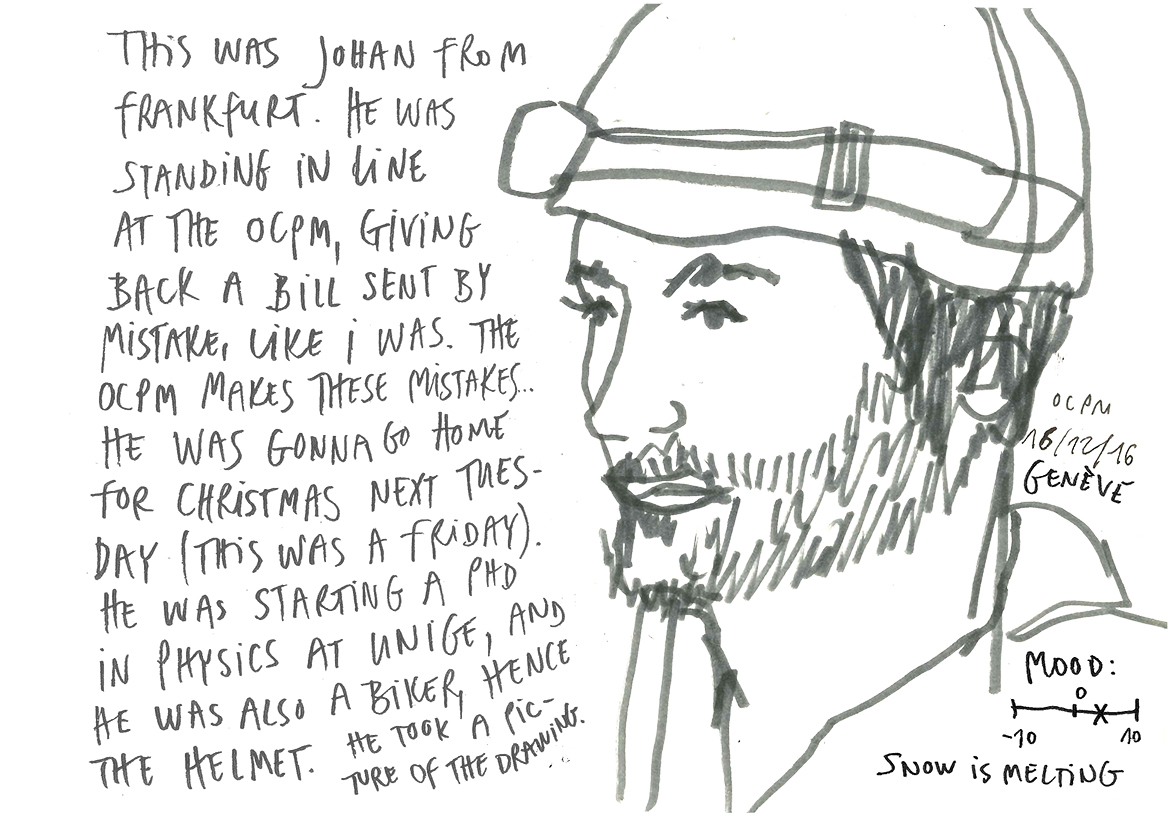 THIS WAS JOHAN FROM
FRANKFURT. HE WAS
STANDING IN LINE
AT THE OCPM, GIVING
BACK A BILL SENT BY
MISTAKE, LIKE I WAS. THE
OCPM MAKES THESE MISTAKES..
HE WAS GONNA GO HOME
FOR CHRISTMAS NEXT TUES-
DAY (THIS WAS A FRIDAY).
HE WAS STARTING A PHD
IN PHYSICS AT UNIGE, AND
HE WAS ALSO A BIKER, HENCE
THE HELMET. HE TOOK A PIC-
TURE OF THE DRAWING...
OCPM
16/12/16
GENÈVE
MOOD:
0
-10 10
SNOW IS MELTING